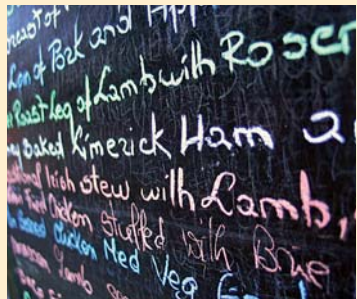 reast of
Loin of Pork and App
Roast Leg of Lamb with Roser
ey Baked Limerick Ham a
tional Irish stew with Lamb,
Fried Chicken stuffed with Brie
Baked Chicken Med Veg
Lamb